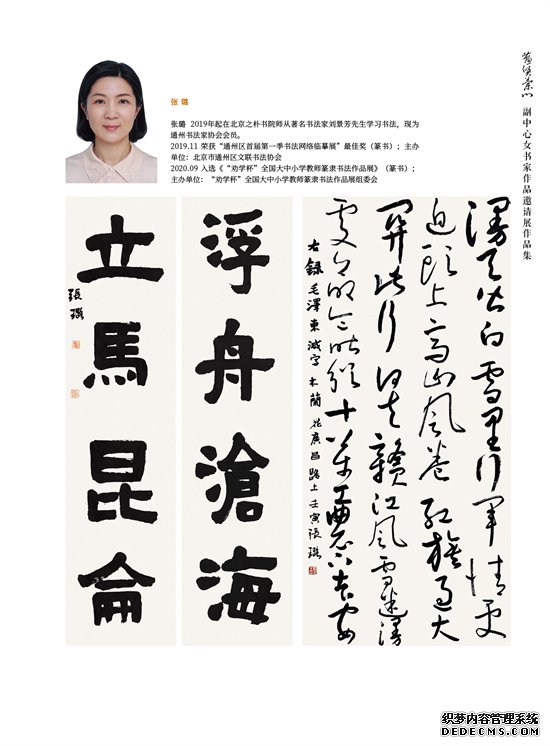 张 璐
张璐 2019年起在北京之朴书院师从著名书法家刘景芳先生学习书法，现为
通州书法家协会会员。
2019.11 荣获“通州区首届第一季书法网络临摹展”最佳奖（篆书）；主办
单位：北京市通州区文联书法协会
2020.09 入选《“劝学杯”全国大中小学教师篆隶书法作品展》（篆书）；
主办单位：“劝学杯”全国大中小学教师篆隶书法作品展组委会
副中心女书家作品邀请展作品集
漫天皆白雪里行軍情更
迫頭上高山風卷紅旗過大
關此行何去贛江風雪迷漫
處命令昨頒十萬工農下吉安
右錄毛澤東減字木蘭花廣昌路上壬寅張璐
浮舟滄海
立馬昆侖
張璐
织梦内容管理系统
DEDECMS.COM